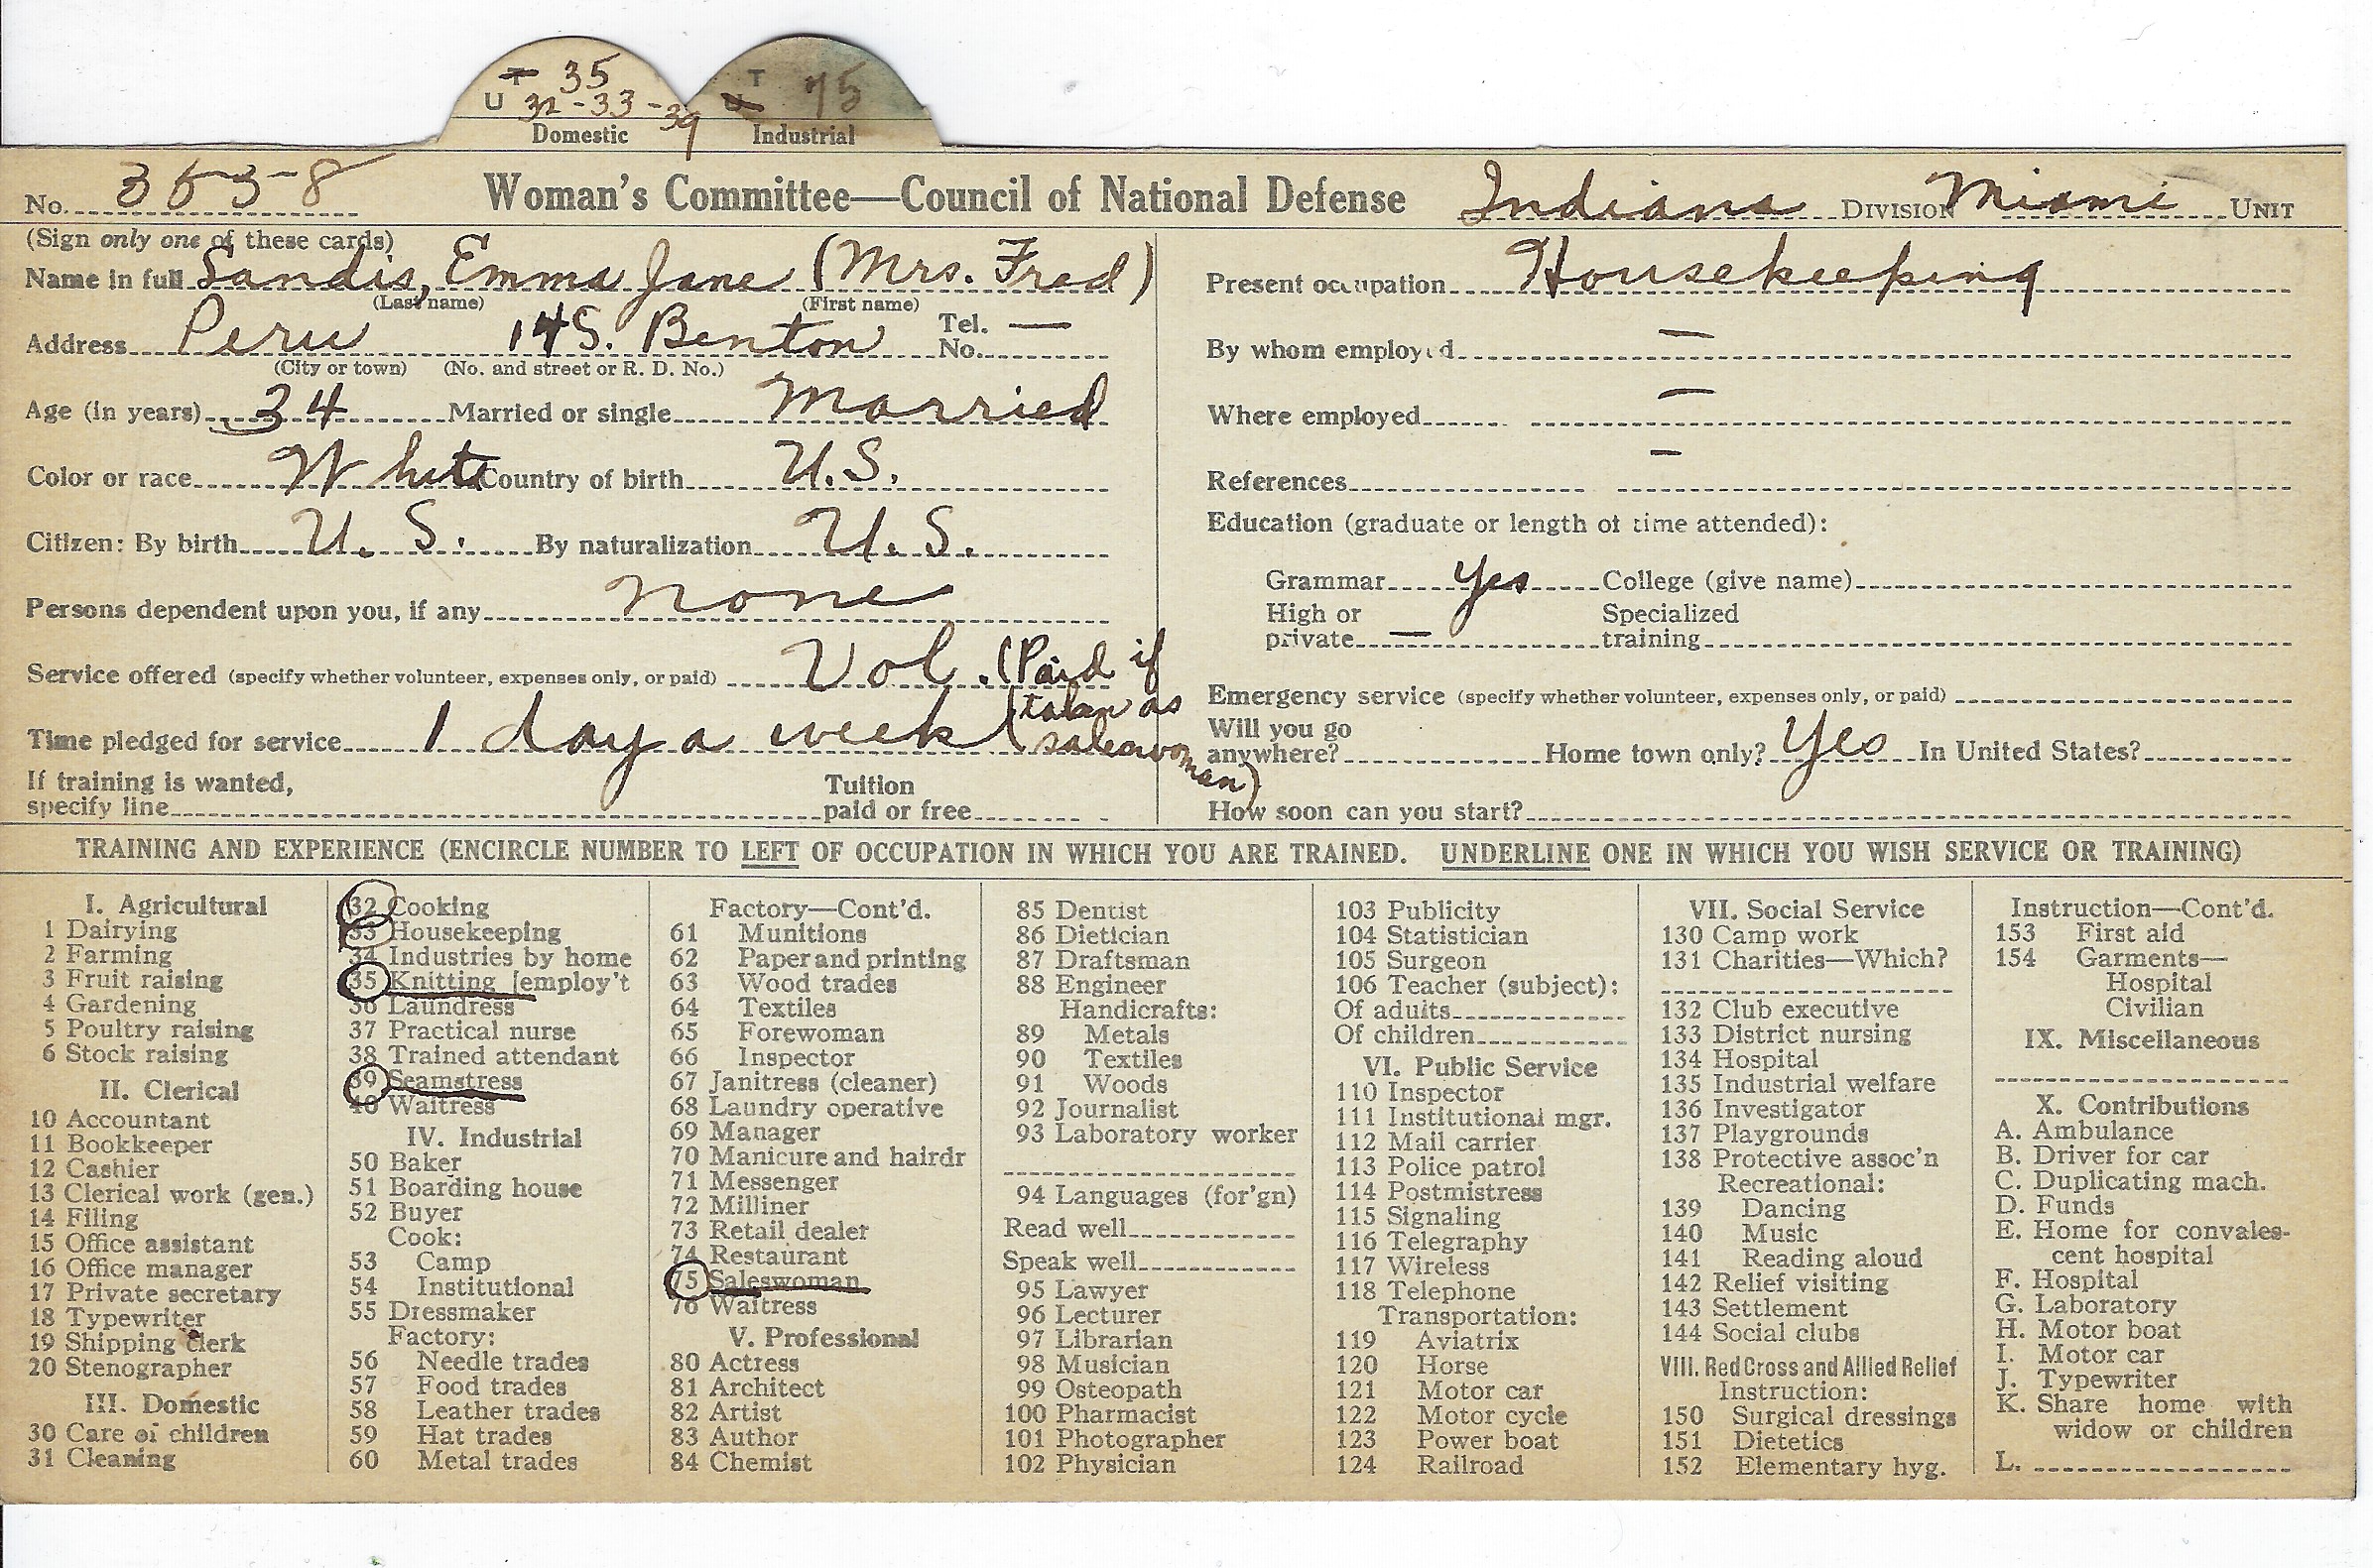 T 35 T 75
U 32-33-39 U
Domestic Industrial
No. 3658 Woman's Committee—Council of National Defense Indiana Division Miami Unit
(Sign only one of these cards)
Name in full Sandis, Emma Jane (Mrs. Fred)
(Last name) (First name)
Address Peru 14 S. Benton Tel. No. —
(City or town) (No. and street or R. D. No.)
Age (in years) 34 Married or single Married
Color or race White Country of birth U.S.
Citizen: By birth U. S. By naturalization U.S.
Persons dependent upon you, if any none
Service offered (specify whether volunteer, expenses only, or paid) Vol. (Paid if
taken as
Time pledged for service 1 day a week saleswoman)
If training is wanted, Tuition
specify line paid or free
Present occupation Housekeeping
By whom employed —
Where employed —
References —
Education (graduate or length of time attended):
Grammar yes College (give name)
High or Specialized
private — training
Emergency service (specify whether volunteer, expenses only, or paid)
Will you go
anywhere? Home town only? Yes In United States?
How soon can you start?
TRAINING AND EXPERIENCE (ENCIRCLE NUMBER TO LEFT OF OCCUPATION IN WHICH YOU ARE TRAINED. UNDERLINE ONE IN WHICH YOU WISH SERVICE OR TRAINING)
I. Agricultural
1 Dairying
2 Farming
3 Fruit raising
4 Gardening
5 Poultry raising
6 Stock raising
II. Clerical
10 Accountant
11 Bookkeeper
12 Cashier
13 Clerical work (gen.)
14 Filing
15 Office assistant
16 Office manager
17 Private secretary
18 Typewriter
19 Shipping clerk
20 Stenographer
III. Domestic
30 Care of children
31 Cleaning
32 Cooking
33 Housekeeping
34 Industries by home
35 Knitting [employ't
36 Laundress
37 Practical nurse
38 Trained attendant
39 Seamstress
40 Waitress
IV. Industrial
50 Baker
51 Boarding house
52 Buyer
Cook:
53 Camp
54 Institutional
55 Dressmaker
Factory:
56 Needle trades
57 Food trades
58 Leather trades
59 Hat trades
60 Metal trades
Factory—Cont'd.
61 Munitions
62 Paper and printing
63 Wood trades
64 Textiles
65 Forewoman
66 Inspector
67 Janitress (cleaner)
68 Laundry operative
69 Manager
70 Manicure and hairdr
71 Messenger
72 Milliner
73 Retail dealer
74 Restaurant
75 Saleswoman
76 Waitress
V. Professional
80 Actress
81 Architect
82 Artist
83 Author
84 Chemist
85 Dentist
86 Dietician
87 Draftsman
88 Engineer
Handicrafts:
89 Metals
90 Textiles
91 Woods
92 Journalist
93 Laboratory worker
94 Languages (for'gn)
Read well
Speak well
95 Lawyer
96 Lecturer
97 Librarian
98 Musician
99 Osteopath
100 Pharmacist
101 Photographer
102 Physician
103 Publicity
104 Statistician
105 Surgeon
106 Teacher (subject):
Of adults
Of children
VI. Public Service
110 Inspector
111 Institutional mgr.
112 Mail carrier
113 Police patrol
114 Postmistress
115 Signaling
116 Telegraphy
117 Wireless
118 Telephone
Transportation:
119 Aviatrix
120 Horse
121 Motor car
122 Motor cycle
123 Power boat
124 Railroad
VII. Social Service
130 Camp work
131 Charities—Which?
132 Club executive
133 District nursing
134 Hospital
135 Industrial welfare
136 Investigator
137 Playgrounds
138 Protective assoc'n
Recreational:
139 Dancing
140 Music
141 Reading aloud
142 Relief visiting
143 Settlement
144 Social clubs
VIII. Red Cross and Allied Relief
Instruction:
150 Surgical dressings
151 Dietetics
152 Elementary hyg.
Instruction—Cont'd.
153 First aid
154 Garments—
Hospital
Civilian
IX. Miscellaneous
X. Contributions
A. Ambulance
B. Driver for car
C. Duplicating mach.
D. Funds
E. Home for convales-
cent hospital
F. Hospital
G. Laboratory
H. Motor boat
I. Motor car
J. Typewriter
K. Share home with
widow or children
L.